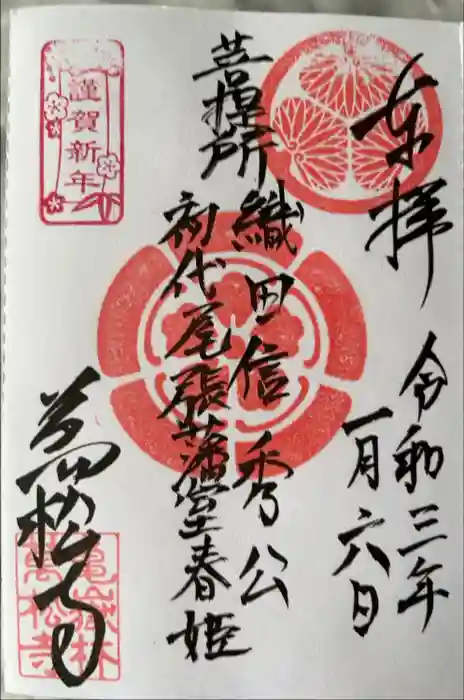 奉拝
令和三年
一月六日
菩提所
織田信秀公
初代尾張藩室春姫
謹賀新年
萬松寺
亀嶽林
萬松寺